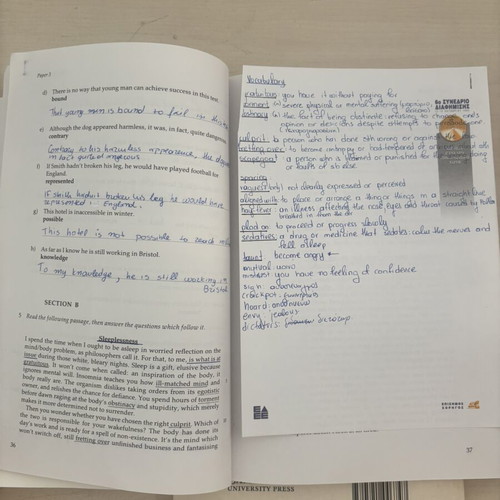 Paper 3
d) There is no way that young man can achieve success in this test.
bound
That young man is bound to fail in this
e) Although the dog appeared harmless, it was, in fact, quite dangerous.
contrary
Contrary to his harmless appearance, the dog
is quite dangerous
f) If Smith hadn't broken his leg, he would have played football for
England.
represented
If Smith hadn't broken his leg he would have
represented England.
g) This hotel is inaccessible in winter.
possible
This hotel is not possible to reach
h) As far as I know he is still working in Bristol.
knowledge
To my knowledge, he is still working in
Bristol
SECTION B
1 Read the following passage, then answer the questions which follow it.
Sleeplessness
I spend the time when I ought to be asleep in worried reflection on the
mind/body problem, as philosophers call it. For that, to me, is what is at
issue during those white, bleary nights. Sleep is a gift, elusive because
gratuitous. It won't come when called: an inspiration of the body, it
ignores mental will. Insomnia teaches you how ill-matched mind and
body really are. The organism dislikes taking orders from its egotistic
owner, and relishes the chance for defiance. You spend hours of torment
before dawn raging at the body's obstinacy and stupidity, which merely
makes it more determined not to surrender.
Then you wonder whether you have chosen the right culprit. Which of
the two is responsible for your wakefulness? The body has done its
day's work and is ready for a spell of non-existence. It's the mind which
won't switch off, still fretting over unfinished business and fantasizing
36
Vocabulary
you have it without paying for
severe physical or mental suffering
the fact of being obstinate: refusing to change one's
opinion or decisions despite attempts to
culprit: a person who has done sth wrong or against
fretting over: to become unhappy or bad-tempered
scapegoat: a person who is blamed or punished for
or faults of sb else
not clearly expressed or perceived
aligned with: to place or arrange a thing or things in a straight line
hay-fever: an illness affecting the nose, eyes and throat caused by pollen
breathed in from the air
plod on: to proceed or progress slowly
sedatives: a drug or medicine that sedates: calm the nerves and
fall asleep
become angry
mistrust you have no feeling of confidence
sigh
crackpot:
hoard:
envy jealous
9ο ΣΥΝΕΔΡΙΟ
37
UNIVERSITY PRESS